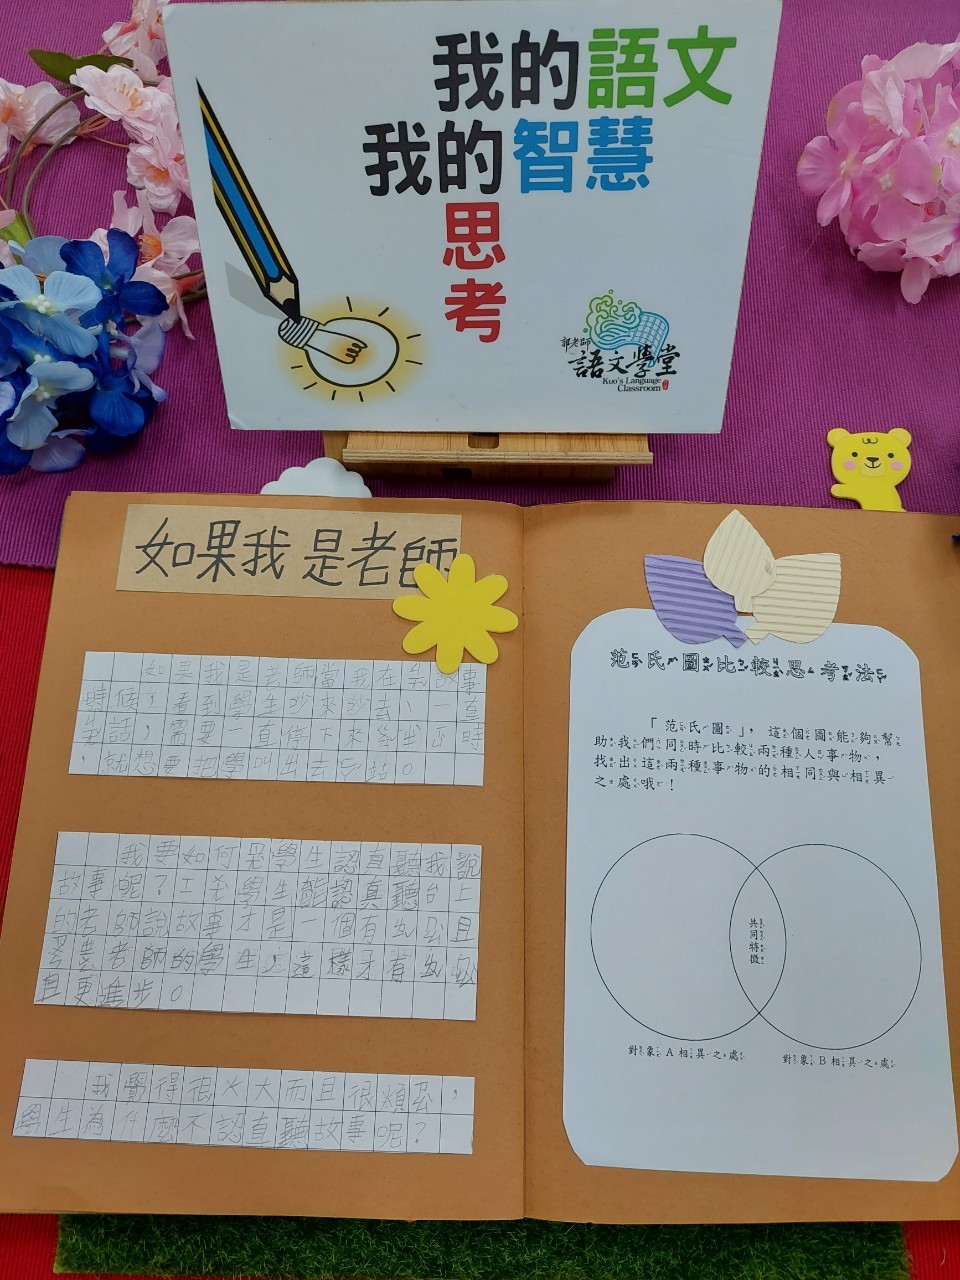 我的語文
我的智慧
思
考
郭老師
語文學堂
Kuo's Language
Classroom
如果我是老師
如果我是老師當我在 故事
時候 看到學生吵來吵去、一直
話，需要一直停下來 時
，就想要把學叫出去 站。
我要如何 學生認真聽我說
故事呢？ 學生 認真聽台上
的老師說故事才是一個有 且
老師的學生，這樣才有
且更進步。
我覺得很火大而且很煩 ，
學生為什麼不認真聽故事呢？
范氏圖比較思考法
「范氏圖」，這個圖能夠幫
助我們同時比較兩種人事物，
找出這兩種事物的相同與相異
之處哦！
共同特徵
對象A相異之處
對象B相異之處